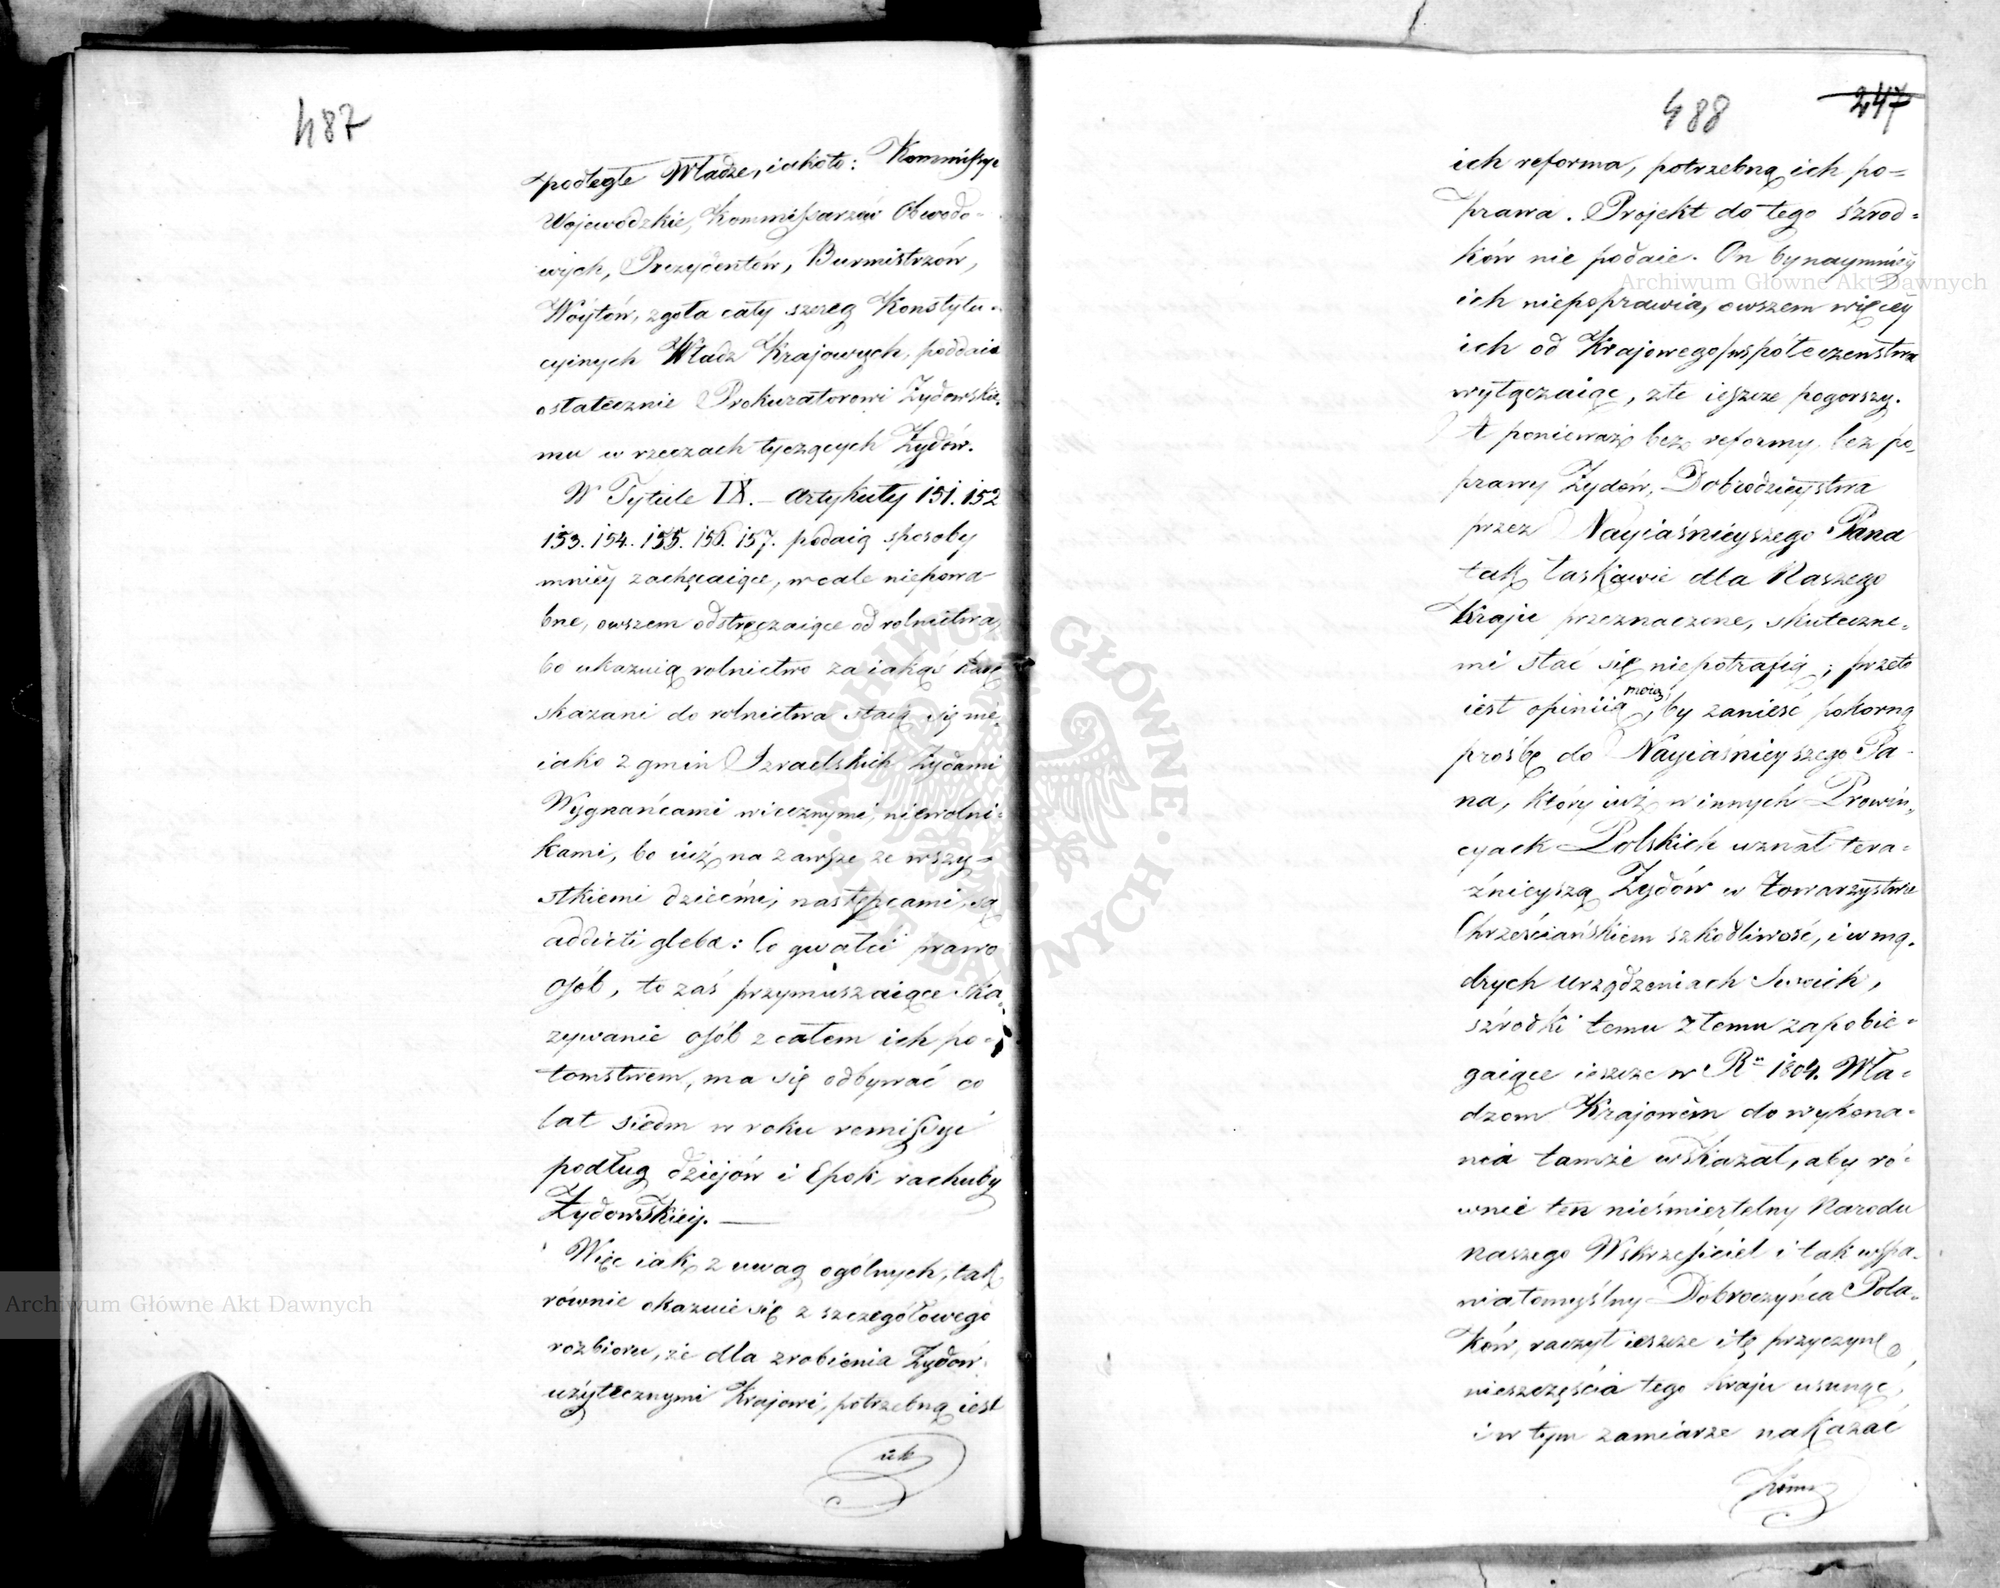 487
podległe Władze, iakoto: Kommissye
Wojewódzkie, Kommissarzów Obwodo-
wych, Prezydentów, Burmistrzów,
Wóytów, zgoła cały szereg Konstytu-
cyinych Władz Krajowych, poddaie
ostatecznie Prokuratorowi Żydowskie-
mu w rzeczach tyczących Żydów.
W Tytule IX. — Artykuły 151. 152
153. 154. 155. 156. 157. podaią sposoby
mniéy zachęcaiące, wcale niepowa-
bne, owszem odstręczaiące od rolnictwa,
bo ukazuią rolnictwo za iakąś karę
skazani do rolnictwa staią się nie-
iako z gmin Izraelskich Żydami
Wygnańcami wiecznymi, niewolni-
kami, bo iuż na zawsze ze wszy-
stkiemi dziećmi, następcami, są
addicti glebæ: Co gwałci prawo
osób, to zaś przymuszaiące ska-
zywanie osób z całem ich po-
tomstwem, ma się odbywać co
lat siedm w roku remissyi
podług dziejów i Epok rachuby
Żydowskiéy. —
Więc iak z uwag ogólnych, tak
równie okazuie się z szczegółowego
rozbioru, że dla zrobienia Żydów
użytecznymi Krajowi, potrzebną iest
ich
488 247
ich reforma, potrzebną ich po-
prawa. Projekt do tego szrod-
ków nie podaie. On bynaymniéy
ich niepoprawia, owszem więcéy
ich od Krajowego współeczenstwa
wyłączaiąc, złe ieszcze pogorszy.
A ponieważ bez reformy, bez po-
prawy Żydów, Dobrodzieystwa
przez Nayiaśnieyszego Pana
tak łaskawie dla Naszego
Kraju przeznaczone, skuteczne-
mi stać się niepotrafią; przeto
iest opiniią moią, by zanieść pokorną
prośbę do Nayiaśnieyszego Pa-
na, który iuż w innych Prowin-
cyach Polskich uznał tera-
źnieyszą Żydów w Towarzystwie
Chrześciańskiem szkodliwość, i w mą-
drych urządzeniach Swoich,
szrodki temu złemu zapobie-
gaiące ieszcze w Ru 1804. Wła-
dzom Krajowém do wykona-
nia tamże wskazał, aby ró-
wnie ten nieśmiertelny Narodu
naszego Wskrzesiciel i tak wspa-
niałomyślny Dobroczyńca Pola-
ków, raczył ieszcze i tę przyczynę
nieszczęścia tego Kraju usunąć,
i w tym zamiarze nakazać
Archiwum Główne Akt Dawnych
Archiwum Główne Akt Dawnych
ARCHIWUM GŁÓWNE AKT DAWNYCH